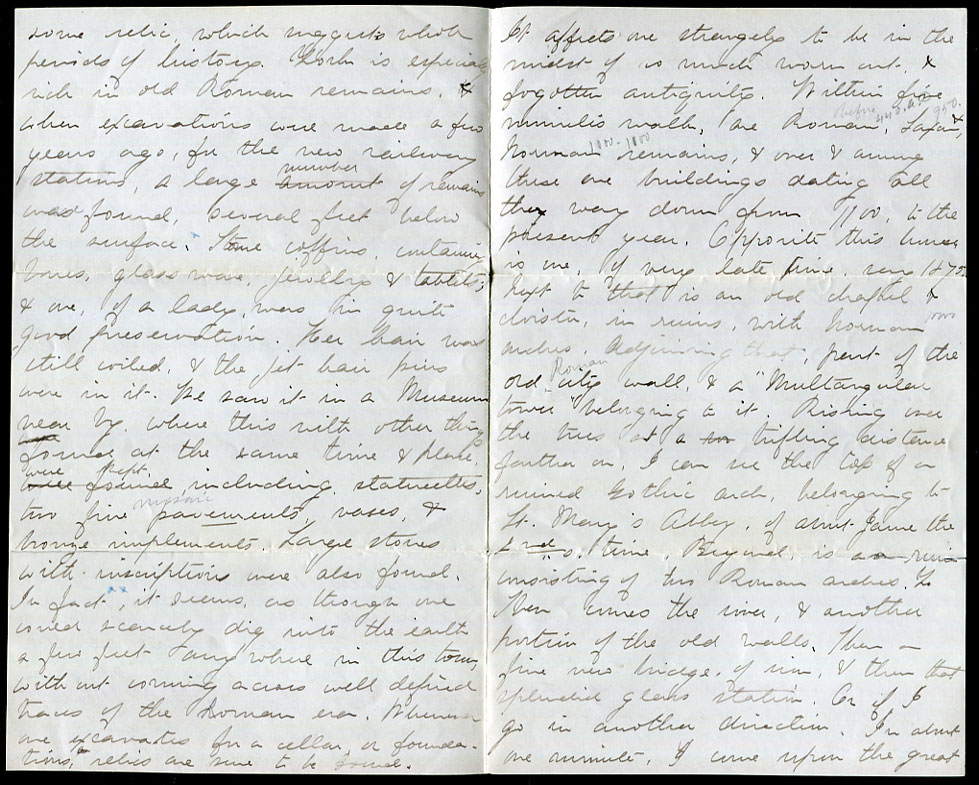 some relic, which suggests whole
periods of history. York is especial
rich in old Roman remains. &
when excavations were made a few
years ago, for the new railway
station, a large amount number of remains
was found, several feet below
the surface. Stone coffins, containing
bones, glass ware, jewelry & tablets;
& one, of a lady, was in quite
good preservation. Her hair was
still coiled, & the jet hair pins
were in it. We saw it in a Museum
near by. where this with other things
found at the same time & place,
were found were kept, including statuettes,
two fine mosaic pavements, vases, &
bronze implements. Large stones
with inscriptions were also found.
In fact, it seems, as though one
could scarcely dig into the earth
a few feet anywhere in this town,
without coming across well defined
traces of the Roman era. Whenever
one excavates for a cellar, or founda-
tions, relics are sure to be found.
It affects one strangely to be in the
midst of so much worn out, &
fogotten antiquity. Within five
before 440. A.D. 950.
minutes walk, are Roman, Saxon &
Norman remains, & over & among
these are buildings dating all
they way down from 1100, to the
present year. Opposite this house
is one, of very late time. say 1870.
next to that is an old chapel &
cloister, in ruins, with Norman
arches. Adjoining that, part of the
old Roman city wall, & a "Multangular
tower" belonging to it. Rising over
the trees at a trifling distance
farther on, I can see the top of a
ruined Gothic arch, belonging to
St. Mary's Abbey, of about Jame the
2nd's time. Beyond, is a ruin
consisting of two Roman arches.
Then comes the river, & another
portion of the old walls. Then a
fine new bridge, of iron, & then that
splendid glass station. Or if I
go in another direction. In about
one minute, I come upon the great